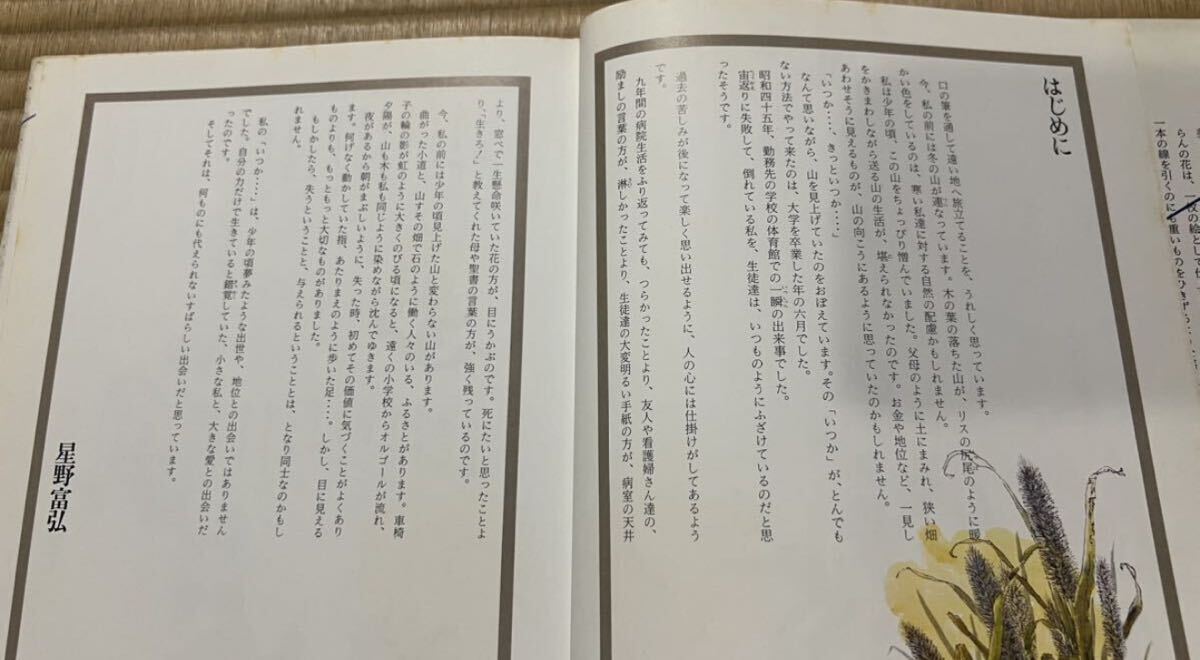 らんの花は、一枚の絵として
一本の線を引くのに
重いものをひきず
はじめに
口の筆を通して遠い地へ旅立てることを、うれしく思っています。
今、私の前には冬の山が連なっています。木の葉の落ちた山が、リスの尻尾のように暖
かい色をしているのは、寒い私達に対する自然の配慮かもしれません。
私は少年の頃、この山をちょっぴり憎んでいました。父母のように土にまみれ、狭い畑
をかきまわしながら送る山の生活が、堪えられなかったのです。お金や地位など、一見し
あわせそうに見えるものが、山の向こうにあるように思っていたのかもしれません。
「いつか‥‥、きっといつか‥‥」
なんて思いながら、山を見上げていたのをおぼえています。その「いつか」が、とんでも
ない方法でやって来たのは、大学を卒業した年の六月でした。
昭和四十五年、勤務先の学校の体育館での一瞬の出来事でした。
宙返りに失敗して、倒れている私を、生徒達は、いつものようにふざけているのだと思
ったそうです。
過去の苦しみが後になって楽しく思い出せるように、人の心には仕掛けがしてあるよう
です。
九年間の病院生活をふり返ってみても、つらかったことより、友人や看護婦さん達の、
励ましの言葉の方が、淋しかったことより、生徒達の大変明るい手紙の方が、病室の天井
より、窓べで一生懸命咲いていた花の方が、目にうかぶのです。死にたいと思ったことよ
り、「生きろ!」と教えてくれた母や聖書の言葉の方が、強く残っているのです。
今、私の前には少年の頃見上げた山と変わらない山があります。
曲がった小道と、山すその畑で石のように働く人々のいる、ふるさとがあります。車椅
子の輪の影が虹のように大きくのびる頃になると、遠くの小学校からオルゴールが流れ、
夕陽が、山も木も私も同じように染めながら沈んでゆきます。
夜があるから朝がまぶしいように、失った時、初めてその価値に気づくことがよくあり
ます。何げなく動かしていた指、あたりまえのように歩いた足‥‥。しかし、目に見える
ものよりも、もっともっと大切なものがありました。
もしかしたら、失うということと、与えられるということは、となり同士なのかもし
れません。
私の「いつか‥‥」は、少年の頃夢みたような出世や、地位との出会いではありません
でした。自分の力だけで生きていると錯覚していた、小さな私と、大きな愛との出会いだ
ったのです。
そしてそれは、何ものにも代えられないすばらしい出会いだと思っています。
星野富弘